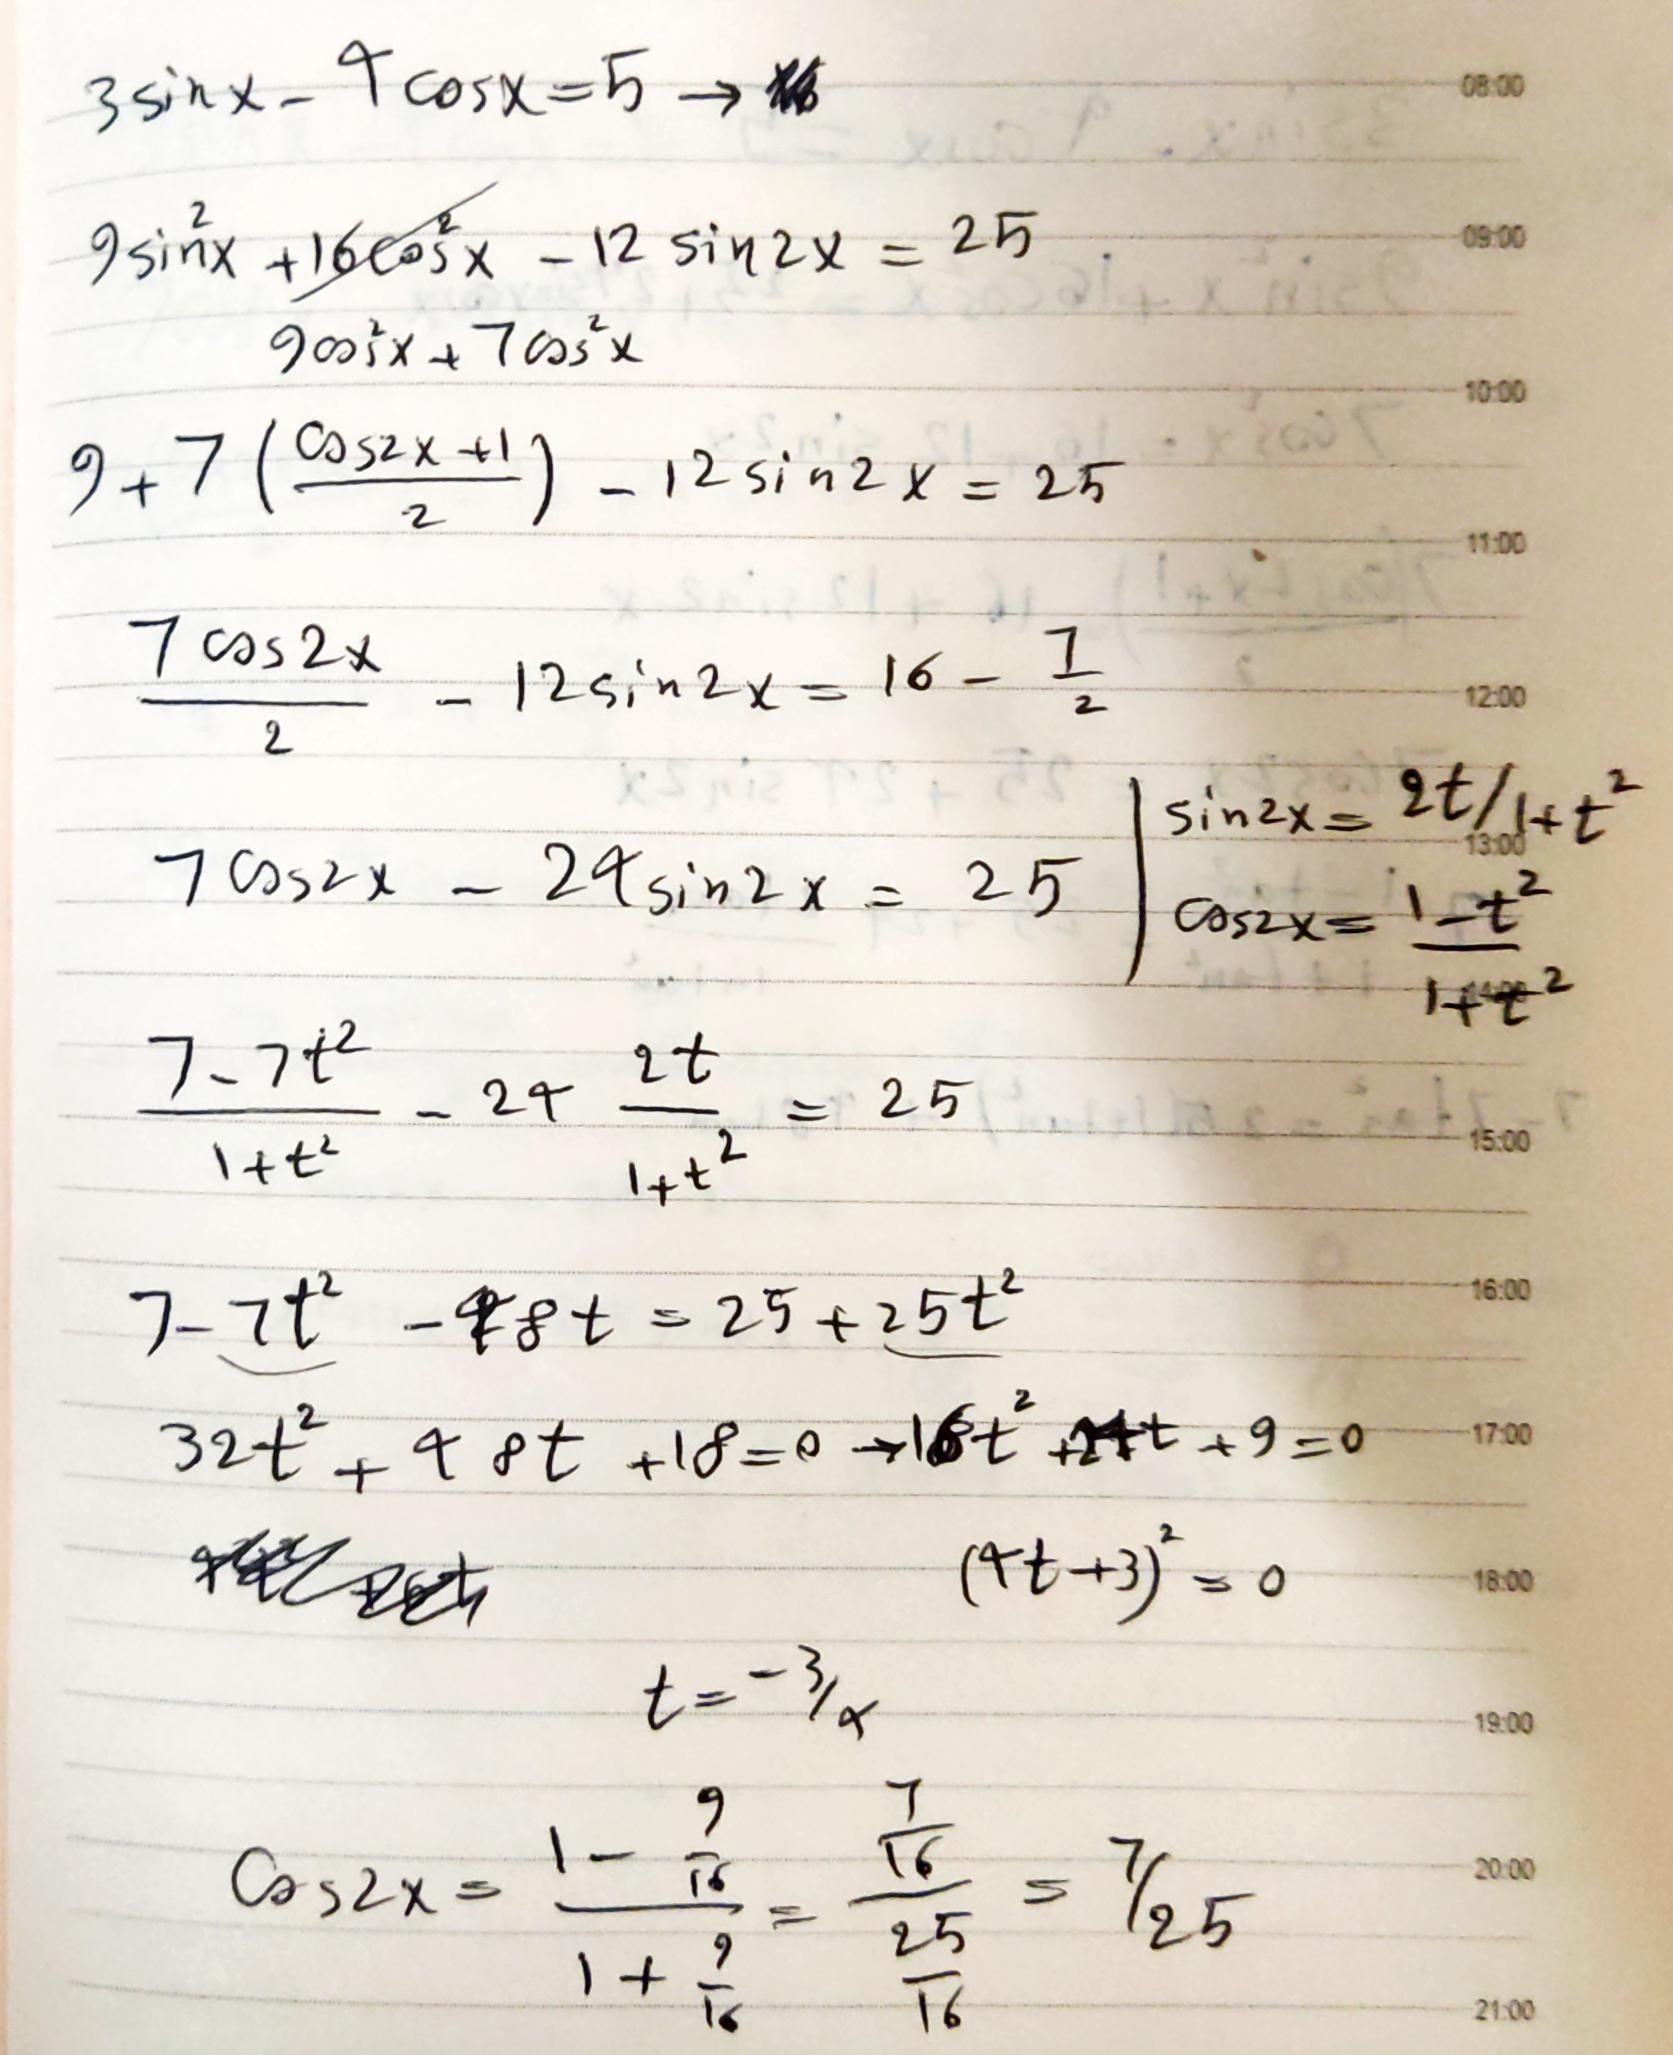 3sinx - 4cosx = 5 →
08:00
9sin²x + 16cos²x - 12 sin2x = 25
09:00
9cos²x + 7cos²x
10:00
9 + 7 ( (cos2x + 1) / 2 ) - 12 sin2x = 25
11:00
7 cos2x / 2 - 12 sin2x = 16 - 7/2
12:00
sin2x = 2t/1+t²
13:00
7 cos2x - 24 sin2x = 25
cos2x = (1-t²) / (1+t²)
14:00
(7-7t²) / (1+t²) - 24 2t / (1+t²) = 25
15:00
7-7t² - 48t = 25 + 25t²
16:00
32t² + 48t + 18 = 0 → 16t² + 24t + 9 = 0
17:00
(4t+3)² = 0
18:00
t = -3/4
19:00
Cos2x = (1 - 9/16) / (1 + 9/16) = (7/16) / (25/16) = 7/25
20:00
21:00